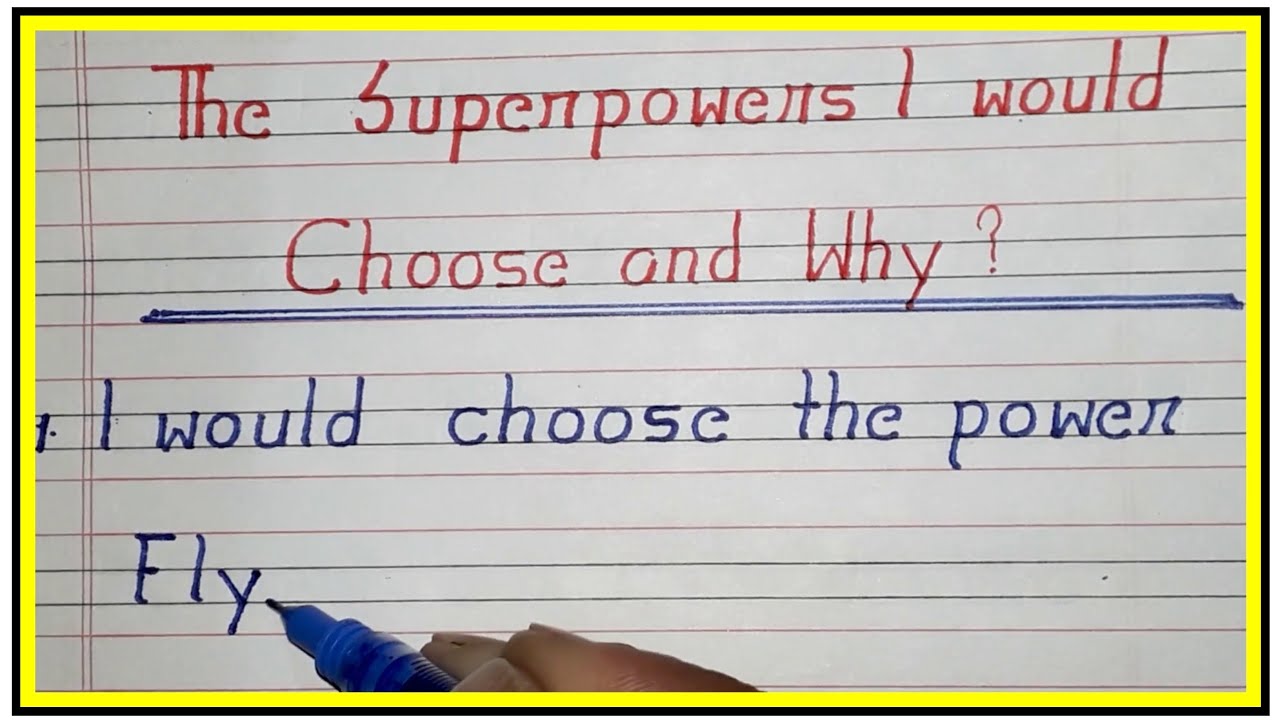 The Superpowers I would
Choose and Why?
1. I would choose the power
Fly